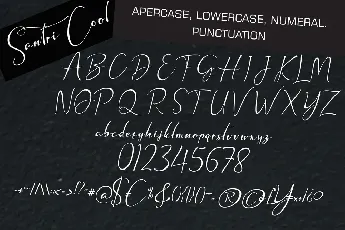 Santri Cool
APERCASE, LOWERCASE, NUMERAL,
PUNCTUATION
ABCDEFGHIJKLM
NOPQRSTUVWXYZ
abcdefghijklmnopqrstuvwxyz
012345678